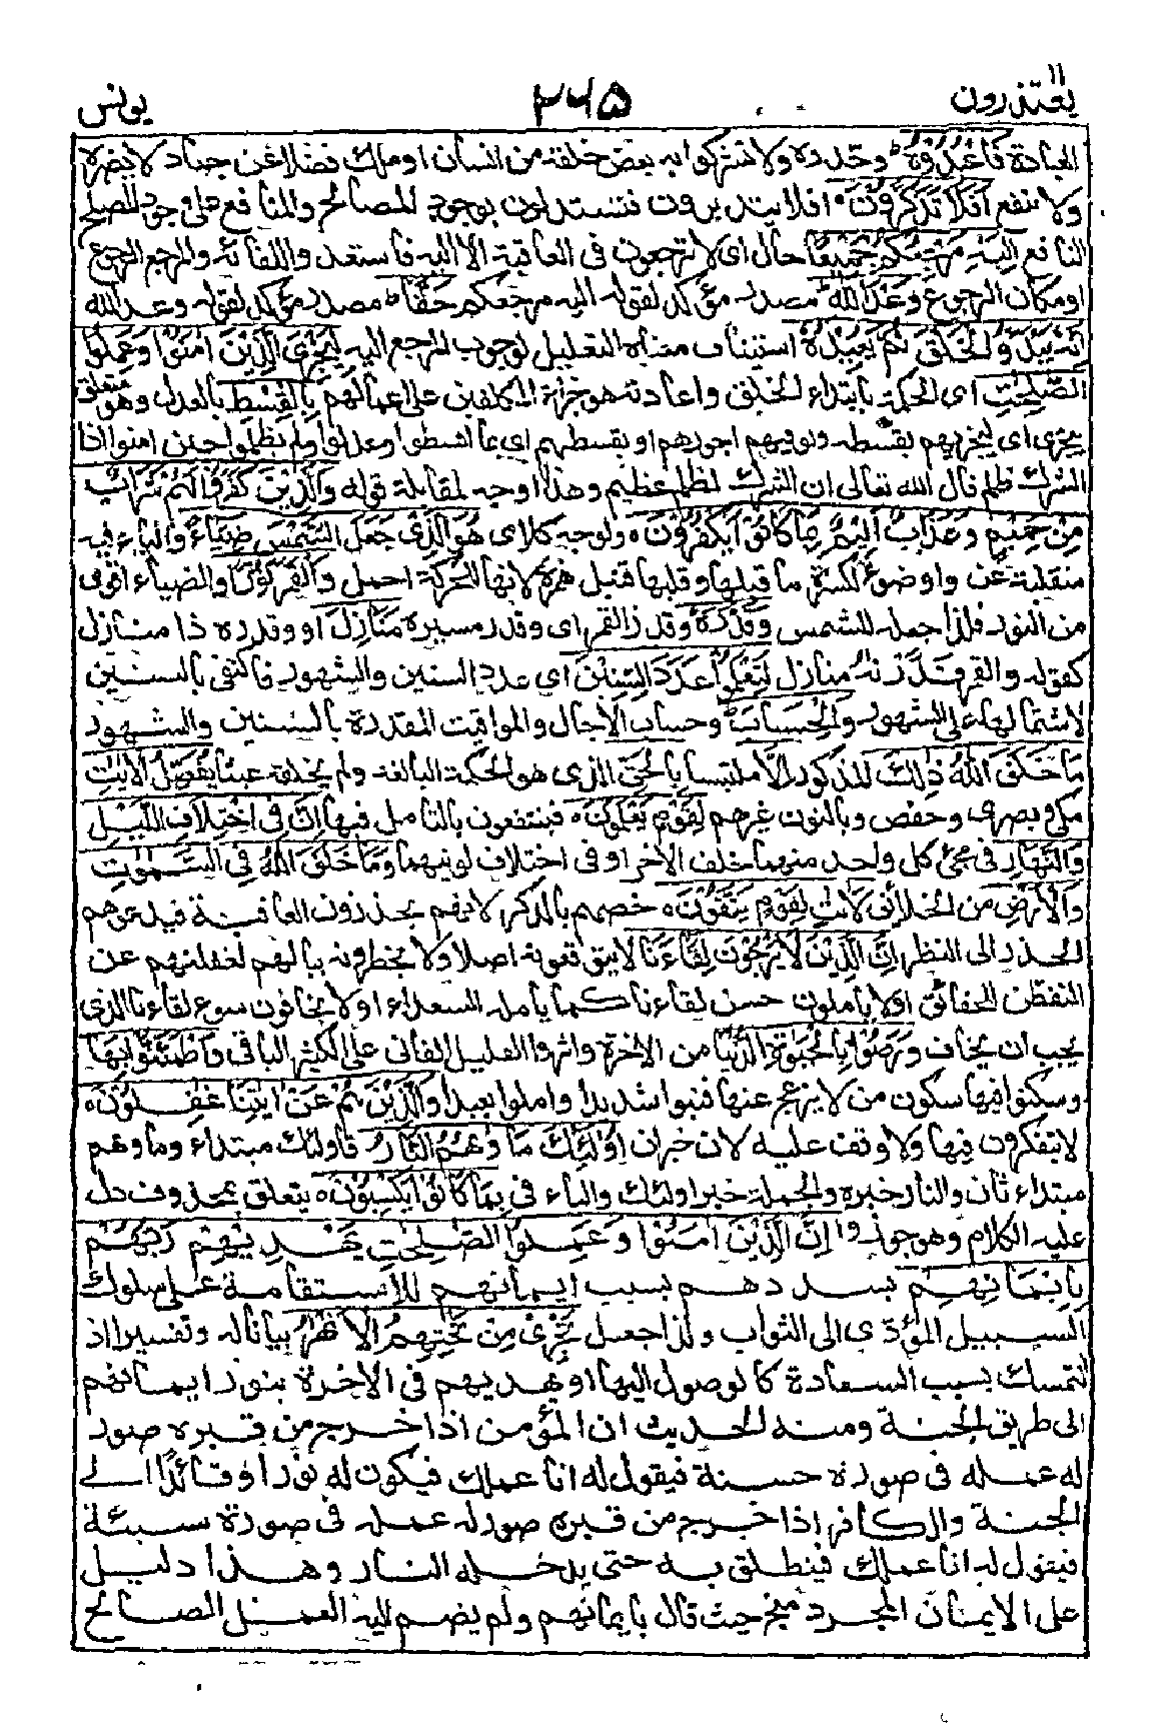 يعتذرون ١١
٢٦٥
يونس
العبادة فَاعْبُدُوْهُ وحّدوه ولا تشركوا به بعض خلقه من انسان او ملك فضلا عن جماد لا يضره
ولا ينفع اَفَلَا تَذَكَّرُوْنَ ه افلا يتدبرون فتستدلون بوجود المصالح والمنافع على وجود المصلح
النافع اِلَيْهِ مَرْجِعُكُمْ جَمِيْعًا حال اى لا ترجعون فى العاقبة الا اليه فاستعدوا للقائه والمرجع الرجوع
او مكان الرجوع وَعْدَ اللهِ مصدر مؤكد لقوله اليه مرجعكم حَقًّا مصدر مؤكد لقوله وعد الله
اِنَّهٗ يَبْدَؤُا الْخَلْقَ ثُمَّ يُعِيْدُهٗ استيناف معناه التعليل لوجوب المرجع اليه لِيَجْزِىَ الَّذِيْنَ اٰمَنُوْا وَعَمِلُوا
الصّٰلِحٰتِ اى الحكمة بابتداء الخلق واعادته هو جزاء المكلفين على اعمالهم بِالْقِسْطِ بالعدل وهو متعلق
بيجزى اى ليجزيهم بقسطه ويوفيهم اجورهم او بقسطهم اى بما اقسطوا وعدلوا ولم يظلموا حين امنوا اذا
الشرك ظلم قال الله تعالى ان الشرك لظلم عظيم وهذا اوجه لمقابلة قوله وَالَّذِيْنَ كَفَرُوْا لَهُمْ شَرَابٌ
مِنْ حَمِيْمٍ وَعَذَابٌ اَلِيْمٌ بِمَا كَانُوْا يَكْفُرُوْنَ ه ولوجه كلاى هُوَ الَّذِىْ جَعَلَ الشَّمْسَ ضِيَاءً والياء فيه
منقلبة عن واو ضوء لكسرة ما قبلها وقلبها قنبل همزة لانها للحركة احمل وَالْقَمَرَ نُوْرًا والضياء اقوى
من النور فلذا جعله للشمس وَقَدَّرَهٗ وقدر القمر اى وقدر مسيره مَنَازِلَ او وقدره ذا منازل
كقوله والقمر قدّرنٰه منازل لِتَعْلَمُوْا عَدَدَ السِّنِيْنَ اى عدد السنين والشهور فاكتفى بالسنين
لاشتمالها على الشهور وَالْحِسَابَ وحساب الاجال والمواقيت المقدرة بالسنين والشهور
مَا خَلَقَ اللهُ ذٰلِكَ المذكور اِلَّا ملتبسا بِالْحَقِّ الذى هو الحكمة البالغة ولم يخلقه عبثا يُفَصِّلُ الْاٰيٰتِ
مكى وبصرى وحفص وبالنون غيرهم لِقَوْمٍ يَّعْلَمُوْنَ ه فينتفعون بالتامل فيها اِنَّ فِى اخْتِلَافِ الَّيْلِ
وَالنَّهَارِ فى مجئ كل واحد منهما خلف الاخر او فى اختلاف لونيهما وَمَا خَلَقَ اللهُ فِى السَّمٰوٰتِ
وَالْاَرْضِ من الخلائق لَاٰيٰتٍ لِّقَوْمٍ يَّتَّقُوْنَ ه خصهم بالذكر لانهم يحذرون العاقبة فيدعوهم
الحذر الى النظر اِنَّ الَّذِيْنَ لَا يَرْجُوْنَ لِقَاءَنَا لا يتوقعونه اصلا ولا يخطرونه ببالهم لغفلتهم عن
التفطن للحقائق او لا ياملون حسن لقاءنا كما يامله السعداء او لا يخافون سوء لقاءنا الذى
يجب ان يخاف وَرَضُوْا بِالْحَيٰوةِ الدُّنْيَا من الاخرة واثروا القليل الفانى على الكثير الباقى وَاطْمَئَنُّوْا بِهَا
وسكنوا فيها سكون من لا يزعج عنها فبنوا شديدا واملوا بعيدا وَالَّذِيْنَ هُمْ عَنْ اٰيٰتِنَا غٰفِلُوْنَ ه
لا يتفكرون فيها ولا وقف عليه لان خبر ان اُولٰئِكَ مَاْوٰهُمُ النَّارُ فاولئك مبتداء وماوهم
مبتداء ثان والنار خبره والجملة خبر اولئك والباء فى بِمَا كَانُوْا يَكْسِبُوْنَ ه يتعلق بمحذوف دل
عليه الكلام وهو جوزوا اِنَّ الَّذِيْنَ اٰمَنُوْا وَعَمِلُوا الصّٰلِحٰتِ يَهْدِيْهِمْ رَبُّهُمْ
بِاِيْمَانِهِمْ يسددهم بسبب ايمانهم للاستقامة على سلوك
السبيل المؤدى الى الثواب ولذا جعل تَجْرِىْ مِنْ تَحْتِهِمُ الْاَنْهٰرُ بيانا له وتفسيرا اذ
التمسك بسبب السعادة كالوصول اليها او يهديهم فى الاخرة بنور ايمانهم
الى طريق الجنة ومنه الحديث ان المؤمن اذا خرج من قبره صور
له عمله فى صورة حسنة فيقول له انا عملك فيكون له نورا وقائدا الى
الجنة والكافر اذا خرج من قبره صور له عمله فى صورة سيئة
فيقول له انا عملك فينطلق به حتى يدخله النار وهذا دليل
على ان الايمان المجرد منج حيث قال بايمانهم ولم يضم اليه العمل الصالح